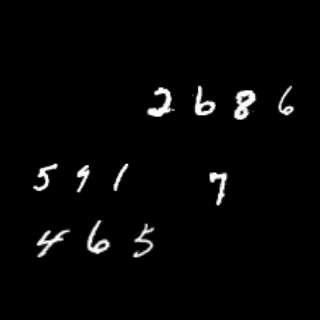 2686
591 7
465